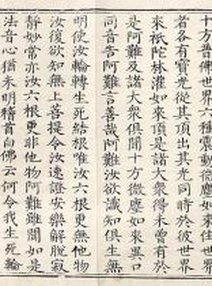 十方普佛世界六種震動微塵如來住世界
者各有寶光從其頂出其光同時於彼世界
來祇陀林灌如來頂是諸大衆得未曾有於
是阿難及諸大衆俱聞十方微塵如來異口
同音告阿難言善哉阿難汝欲識知俱生無
明使汝輪轉生死結根唯汝六根更無他物
汝復欲知無上菩提令汝速證安樂解脫寂
靜妙常亦汝六根更非他物阿難雖聞如是
法音心猶未明稽首白佛云何令我生死輪